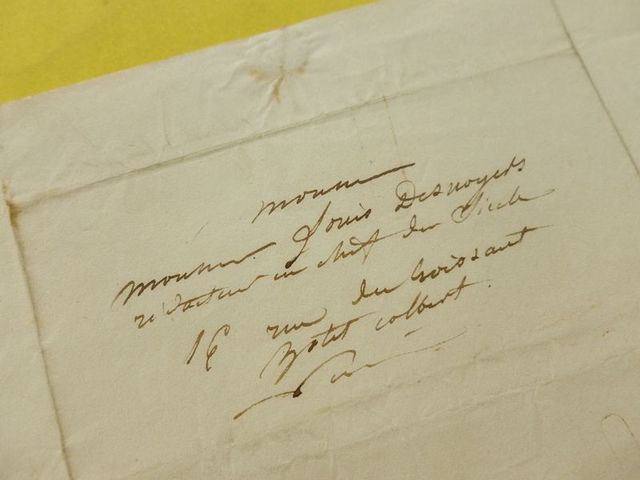 Monsieur
Monsieur Louis Desnoyers
rédacteur en chef du Siècle
16 rue du Croissant
hotel colbert.
Paris